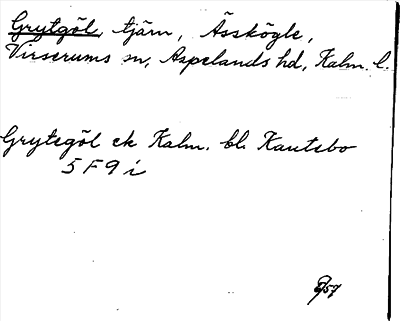 Grytgöl, tjärn, Ässkögle,
Virserums sn, Aspelands hd, Kalm. l.
Grytegöl ek Kalm. bl. Kantebo
5 F 9 i